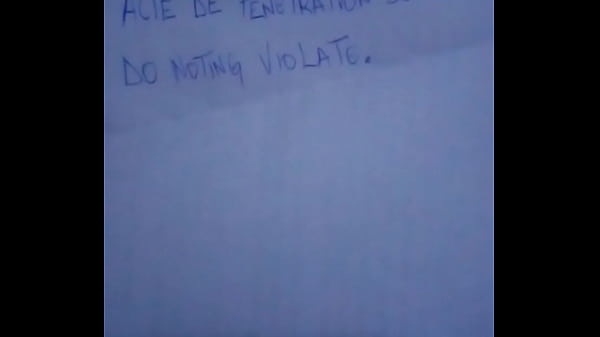 ACTE DE PENETRATION
DO NOTING VIOLATE.